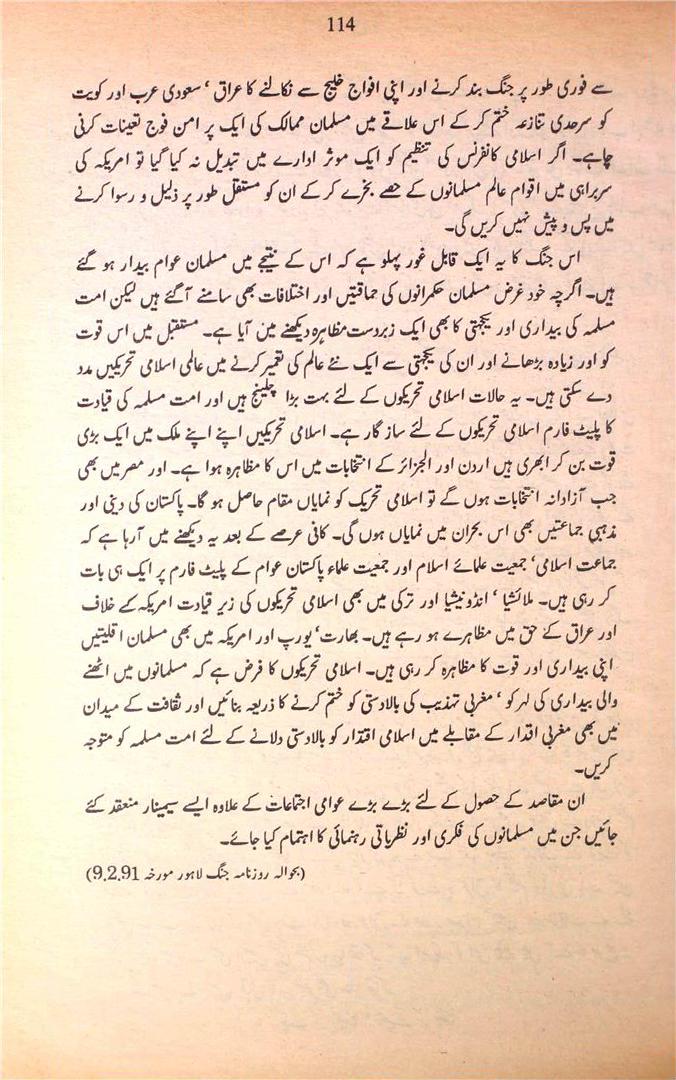 114
سے فوری طور پر جنگ بند کرنے اور اپنی افواج خلیج سے نکالنے کا عراق ‘ سعودی عرب اور کویت
کو سرحدی تنازعہ ختم کر کے اس علاقے میں مسلمان ممالک کی ایک پر امن فوج تعینات کرنی
چاہے۔ اگر اسلامی کانفرنس کی تنظیم کو ایک موثر ادارے میں تبدیل نہ کیا گیا تو امریکہ کی
سربراہی میں اقوام عالم مسلمانوں کے حصے بخرے کر کے ان کو مستقل طور پر ذلیل و رسوا کرنے
میں پس و پیش نہیں کریں گی۔
اس جنگ کا یہ ایک قابل غور پہلو ہے کہ اس کے نتیجے میں مسلمان عوام بیدار ہو گئے
ہیں۔ اگرچہ خود غرض مسلمان حکمرانوں کی حماقتیں اور اختلافات بھی سامنے آگئے ہیں لیکن امت
مسلمہ کی بیداری اور یکجہتی کا بھی ایک زبردست مظاہرہ دیکھنے میں آیا ہے۔ مستقبل میں اس قوت
کو اور زیادہ بڑھانے اور ان کی یکجہتی سے ایک نئے عالم کی تعمیر کرنے میں عالمی اسلامی تحریکیں مدد
دے سکتی ہیں۔ یہ حالات اسلامی تحریکوں کے لئے بہت بڑا چیلنج ہیں اور امت مسلمہ کی قیادت
کا پلیٹ فارم اسلامی تحریکوں کے لئے ساز گار ہے۔ اسلامی تحریکیں اپنے اپنے ملک میں ایک بڑی
قوت بن کر ابھری ہیں اردن اور الجزائر کے انتخابات میں اس کا مظاہرہ ہوا ہے۔ اور مصر میں بھی
جب آزادانہ انتخابات ہوں گے تو اسلامی تحریک کو نمایاں مقام حاصل ہو گا۔ پاکستان کی دینی اور
مذہبی جماعتیں بھی اس بحران میں نمایاں ہوں گی۔ کافی عرصے کے بعد یہ دیکھنے میں آرہا ہے کہ
جماعت اسلامی‘ جمعیت علمائے اسلام اور جمعیت علماء پاکستان عوام کے پلیٹ فارم پر ایک ہی بات
کر رہی ہیں۔ ملائشیا ‘ انڈونیشیا اور ترکی میں بھی اسلامی تحریکوں کی زیر قیادت امریکہ کے خلاف
اور عراق کے حق میں مظاہرے ہو رہے ہیں۔ بھارت‘ یورپ اور امریکہ میں بھی مسلمان اقلیتیں
اپنی بیداری اور قوت کا مظاہرہ کر رہی ہیں۔ اسلامی تحریکوں کا فرض ہے کہ مسلمانوں میں اٹھنے
والی بیداری کی لہر کو ‘ مغربی تہذیب کی بالادستی کو ختم کرنے کا ذریعہ بنائیں اور ثقافت کے میدان
میں بھی مغربی اقدار کے مقابلے میں اسلامی اقتدار کو بالادستی دلانے کے لئے امت مسلمہ کو متوجہ
کریں۔
ان مقاصد کے حصول کے لئے بڑے بڑے عوامی اجتماعات کے علاوہ ایسے سیمینار منعقد کئے
جائیں جن میں مسلمانوں کی فکری اور نظریاتی رہنمائی کا اہتمام کیا جائے۔
(بحوالہ روزنامہ جنگ لاہور مورخہ 9.2.91)